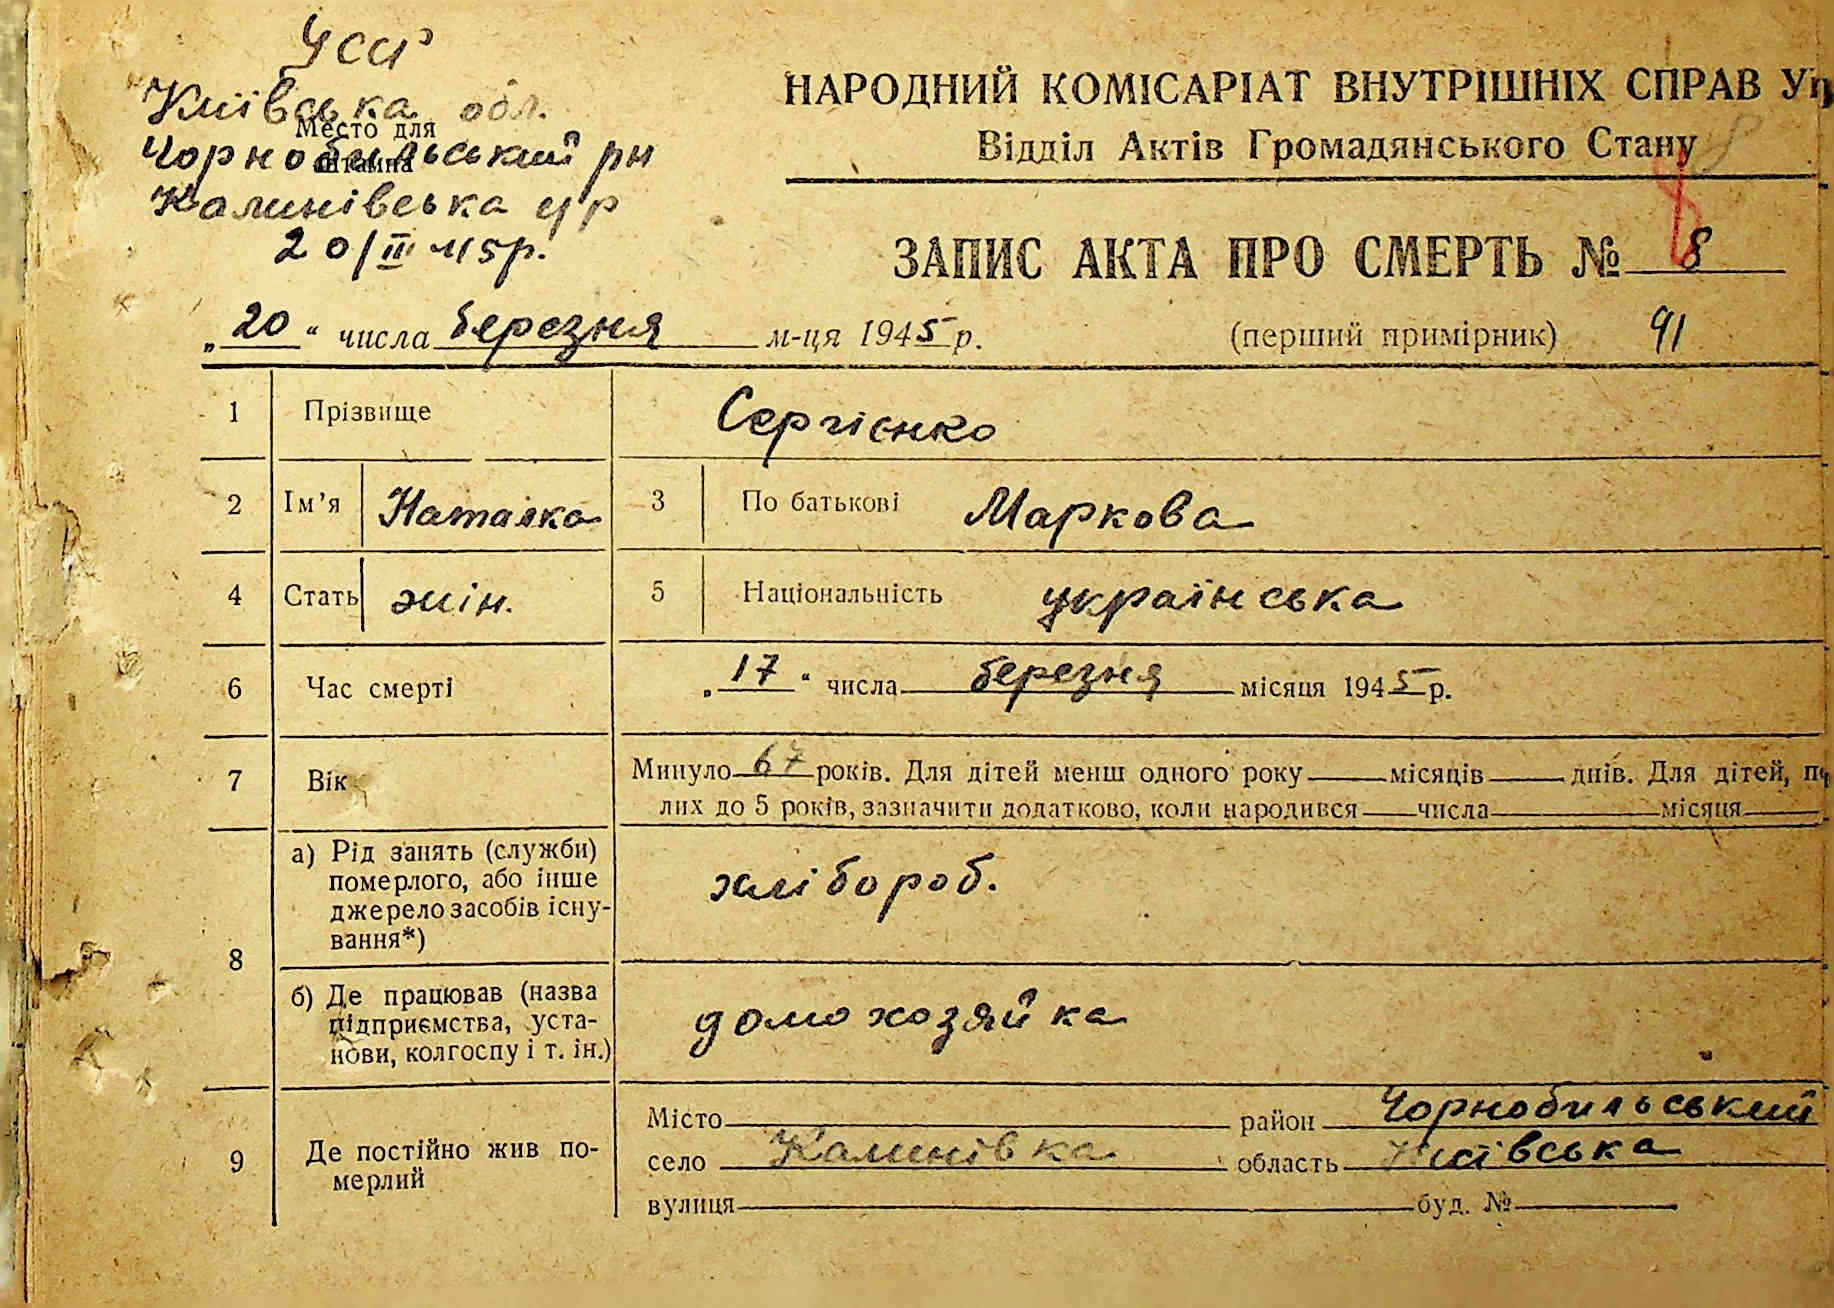 УССР
Київська обл.
Место для
Чорнобильський рн
штампа
Калинівська с/р
20/III 45р.
НАРОДНИЙ КОМІСАРІАТ ВНУТРІШНІХ СПРАВ
Відділ Актів Громадянського Стану
8
ЗАПИС АКТА ПРО СМЕРТЬ № 8
„20“ числа березня м-ця 1945 р.
(перший примірник) 91
1 Прізвище Сергієнко
2 Ім'я Наталка 3 По батькові Маркова
4 Стать жін. 5 Національність українська
6 Час смерті „17“ числа березня місяця 1945 р.
7 Вік Минуло 67 років. Для дітей менш одного року місяців днів. Для дітей,
лих до 5 років, зазначити додатково, коли народився числа місяця
8 а) Рід занять (служби)
померлого, або інше
джерело засобів існу-
вання*)
хлібороб.
б) Де працював (назва
підприємства, уста-
нови, колгоспу і т. ін.)
домохозяйка
9 Де постійно жив по-
мерлий
Місто район Чорнобильський
село Калинівка область Київська
вулиця буд. №